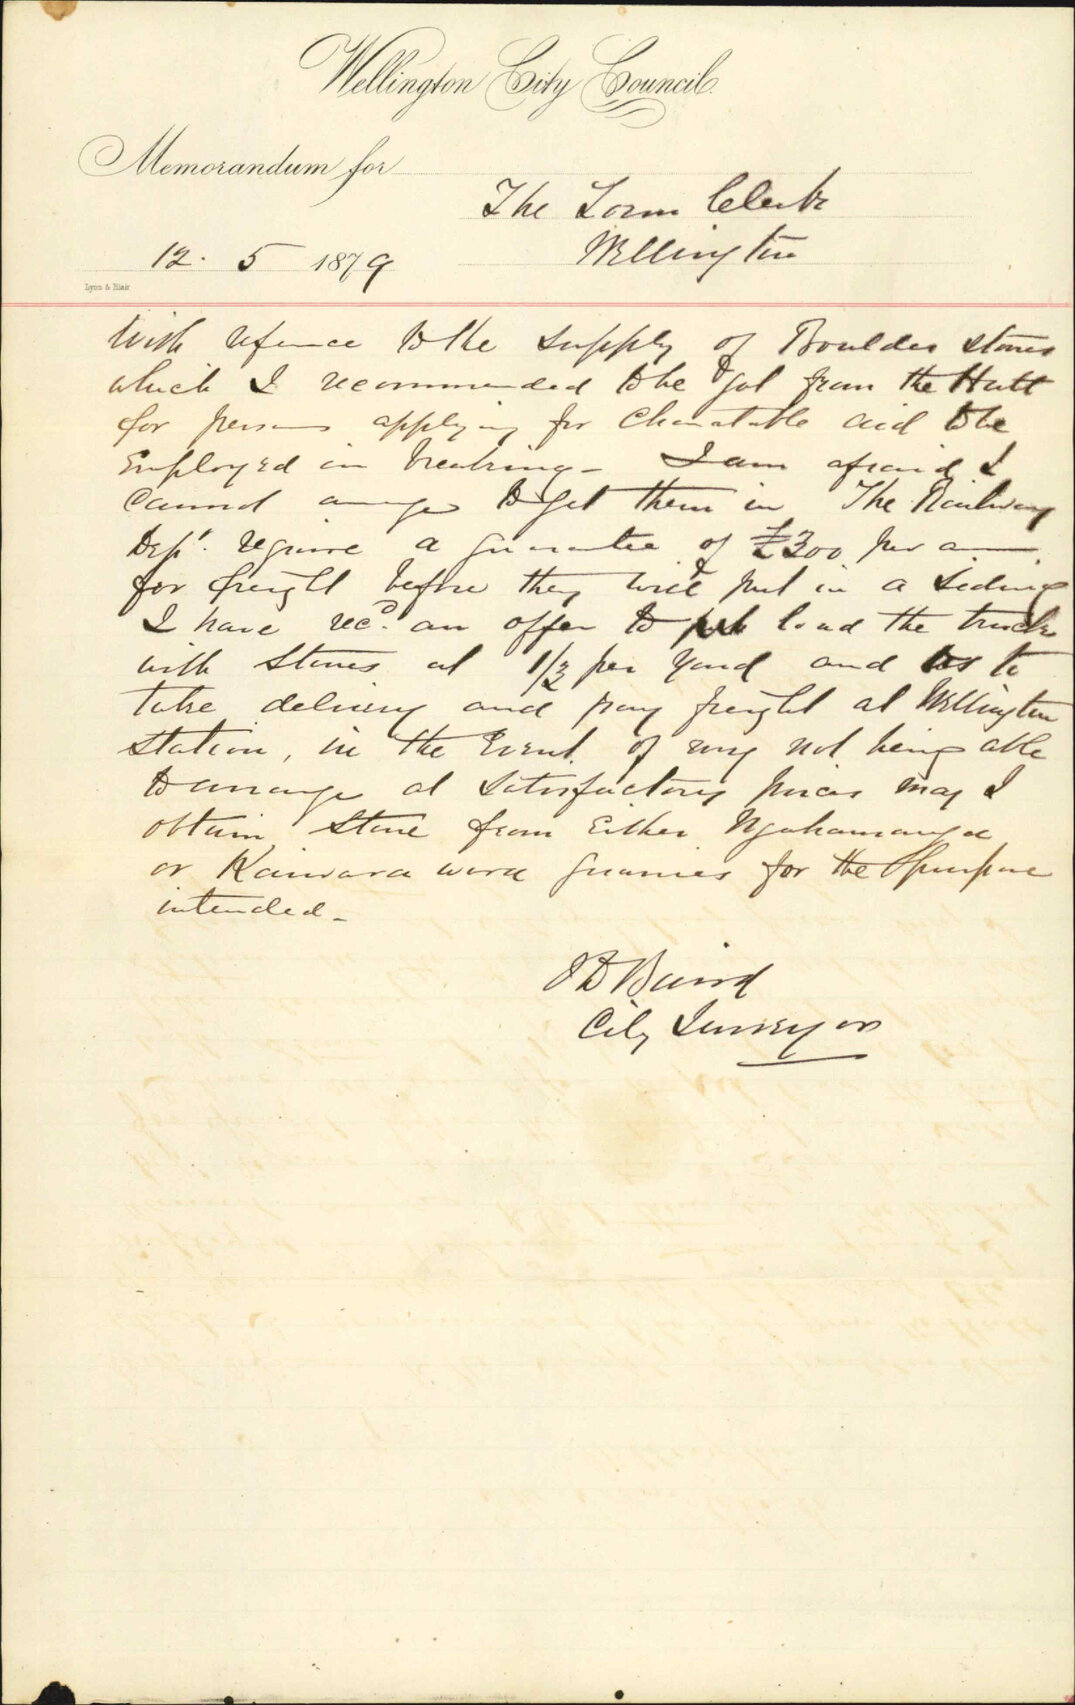 Wellington City Council.
Memorandum for
The Town Clerk
Wellington
12. 5 1879
Lyon & Blair
With reference to the supply of Boulder stones
which I recommended to be got from the Hutt
for persons applying for Charitable aid to be
Employed in breaking - I am afraid I
cannot arrange to get them in The Railway
Dept. require a guarantee of £300 per
for freight before they will put in a siding
I have recd. an offer to load the trucks
with stones at 1/3 per yard and to
take delivery and pay freight at Wellington
station, in the Event of my not being able
to arrange at satisfactory prices may I
obtain stone from Either Ngahauranga
or Kaiwara quarries for the purpose
intended -
J D Baird
City Surveyor